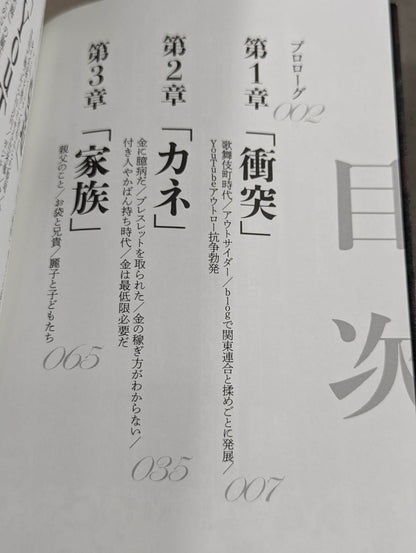 目次
プロローグ
002
第1章「衝突」
歌舞伎町時代／アウトサイダー／blogで関東連合と揉めごとに発展／
YouTubeアウトロー抗争勃発
007
第2章「カネ」
金に臆病だ／ブレスレットを取られた／金の稼ぎ方がわからない／
付き人やかばん持ち時代／金は最低限必要だ
035
第3章「家族」
親父のこと／お袋と兄貴／麗子と子どもたち
065